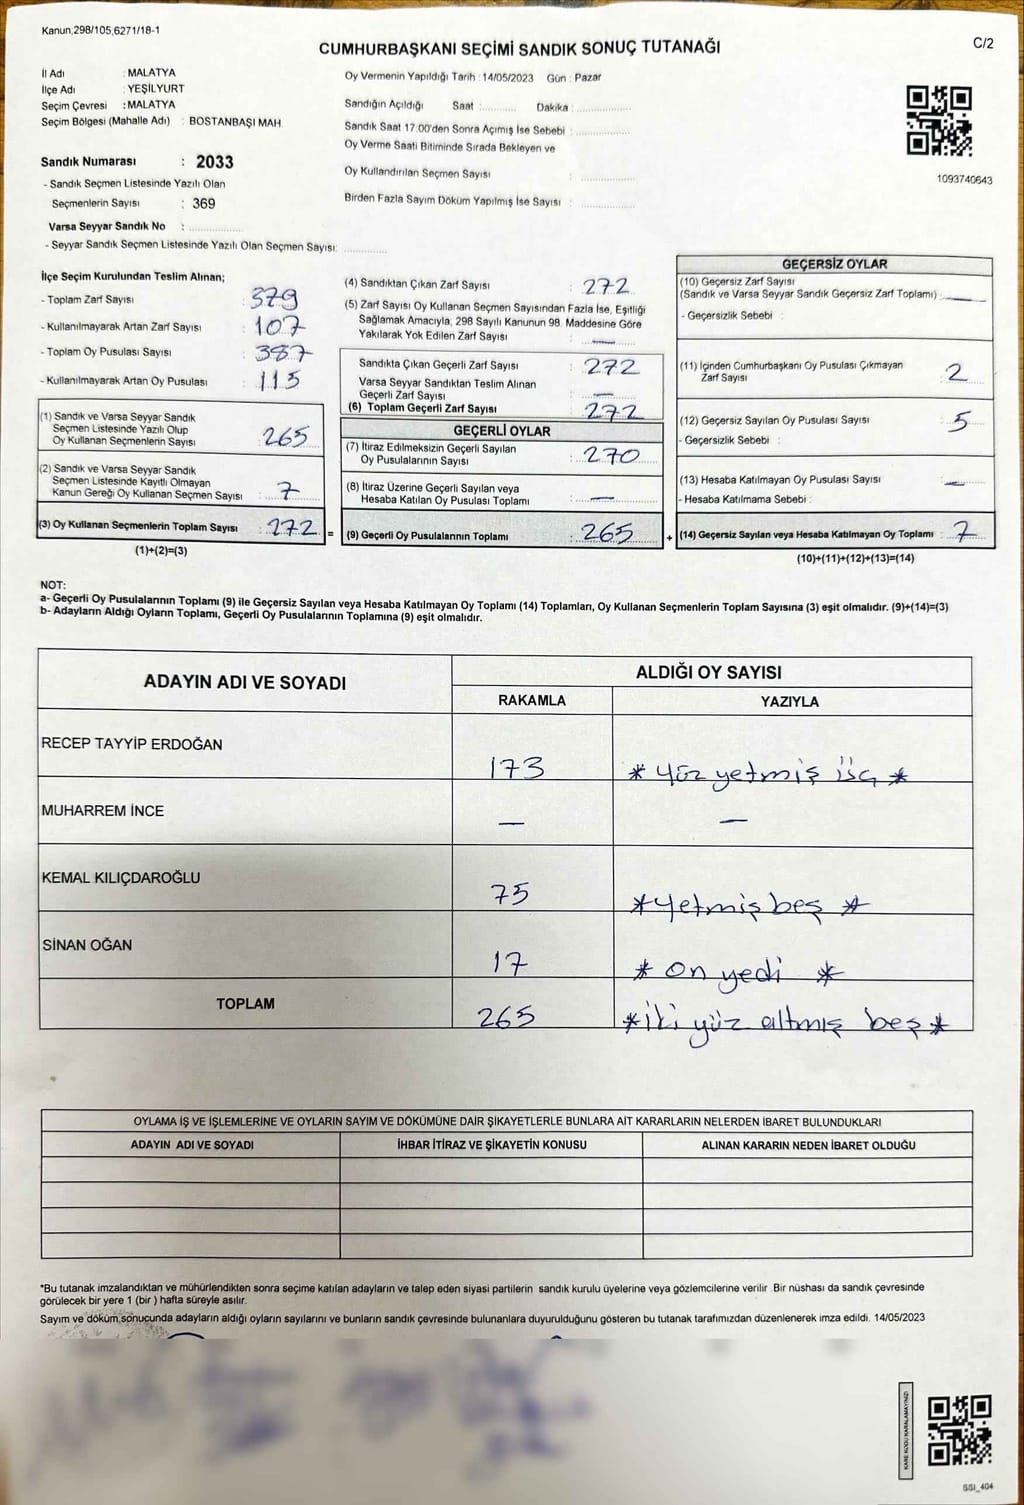 Kanun,298/105,6271/18-1
C/2
CUMHURBAŞKANI SEÇİMİ SANDIK SONUÇ TUTANAĞI
İl Adı : MALATYA
İlçe Adı : YEŞİLYURT
Seçim Çevresi : MALATYA
Seçim Bölgesi (Mahalle Adı) : BOSTANBAŞI MAH.
Sandık Numarası : 2033
- Sandık Seçmen Listesinde Yazılı Olan
Seçmenlerin Sayısı : 369
Varsa Seyyar Sandık No :
- Seyyar Sandık Seçmen Listesinde Yazılı Olan Seçmen Sayısı:
Oy Vermenin Yapıldığı Tarih : 14/05/2023 Gün : Pazar
Sandığın Açıldığı Saat : Dakika :
Sandık Saat 17:00'den Sonra Açımış İse Sebebi :
Oy Verme Saati Bitiminde Sırada Bekleyen ve
Oy Kullandırılan Seçmen Sayısı :
Birden Fazla Sayım Döküm Yapılmış İse Sayısı :
1093740643
İlçe Seçim Kurulundan Teslim Alınan;
- Toplam Zarf Sayısı : 379
- Kullanılmayarak Artan Zarf Sayısı : 107
- Toplam Oy Pusulası Sayısı : 387
- Kullanılmayarak Artan Oy Pusulası : 115
(1) Sandık ve Varsa Seyyar Sandık
Seçmen Listesinde Yazılı Olup
Oy Kullanan Seçmenlerin Sayısı : 265
(2) Sandık ve Varsa Seyyar Sandık
Seçmen Listesinde Kayıtlı Olmayan
Kanun Gereği Oy Kullanan Seçmen Sayısı : 7
(3) Oy Kullanan Seçmenlerin Toplam Sayısı : 272 =
(1)+(2)=(3)
(4) Sandıktan Çıkan Zarf Sayısı : 272
(5) Zarf Sayısı Oy Kullanan Seçmen Sayısından Fazla İse, Eşitliği
Sağlamak Amacıyla, 298 Sayılı Kanunun 98. Maddesine Göre
Yakılarak Yok Edilen Zarf Sayısı : —
Sandıkta Çıkan Geçerli Zarf Sayısı : 272
Varsa Seyyar Sandıktan Teslim Alınan
Geçerli Zarf Sayısı : —
(6) Toplam Geçerli Zarf Sayısı : 272
GEÇERLİ OYLAR
(7) İtiraz Edilmeksizin Geçerli Sayılan
Oy Pusulalarının Sayısı : 270
(8) İtiraz Üzerine Geçerli Sayılan veya
Hesaba Katılan Oy Pusulası Toplamı : —
(9) Geçerli Oy Pusulalarının Toplamı : 265 +
GEÇERSİZ OYLAR
(10) Geçersiz Zarf Sayısı
(Sandık ve Varsa Seyyar Sandık Geçersiz Zarf Toplamı) : —
- Geçersizlik Sebebi :
(11) İçinden Cumhurbaşkanı Oy Pusulası Çıkmayan
Zarf Sayısı : 2
(12) Geçersiz Sayılan Oy Pusulası Sayısı : 5
- Geçersizlik Sebebi :
(13) Hesaba Katılmayan Oy Pusulası Sayısı : —
- Hesaba Katılmama Sebebi :
(14) Geçersiz Sayılan veya Hesaba Katılmayan Oy Toplamı : 7
(10)+(11)+(12)+(13)=(14)
NOT:
a- Geçerli Oy Pusulalarının Toplamı (9) ile Geçersiz Sayılan veya Hesaba Katılmayan Oy Toplamı (14) Toplamları, Oy Kullanan Seçmenlerin Toplam Sayısına (3) eşit olmalıdır. (9)+(14)=(3)
b- Adayların Aldığı Oyların Toplamı, Geçerli Oy Pusulalarının Toplamına (9) eşit olmalıdır.
ADAYIN ADI VE SOYADI
ALDIĞI OY SAYISI
RAKAMLA YAZIYLA
RECEP TAYYİP ERDOĞAN 173 *yüz yetmiş üç*
MUHARREM İNCE — —
KEMAL KILIÇDAROĞLU 75 *yetmiş beş*
SİNAN OĞAN 17 *on yedi*
TOPLAM 265 *iki yüz altmış beş*
OYLAMA İŞ VE İŞLEMLERİNE VE OYLARIN SAYIM VE DÖKÜMÜNE DAİR ŞİKAYETLERLE BUNLARA AİT KARARLARIN NELERDEN İBARET BULUNDUKLARI
ADAYIN ADI VE SOYADI İHBAR İTİRAZ VE ŞİKAYETİN KONUSU ALINAN KARARIN NEDEN İBARET OLDUĞU
*Bu tutanak imzalandıktan ve mühürlendikten sonra seçime katılan adayların ve talep eden siyasi partilerin sandık kurulu üyelerine veya gözlemcilerine verilir. Bir nüshası da sandık çevresinde
görülecek bir yere 1 (bir ) hafta süreyle asılır.
Sayım ve döküm sonucunda adayların aldığı oyların sayılarını ve bunların sandık çevresinde bulunanlara duyurulduğunu gösteren bu tutanak tarafımızdan düzenlenerek imza edildi. 14/05/2023
KARE KODU KARALAMAYINIZ!
SSI_404